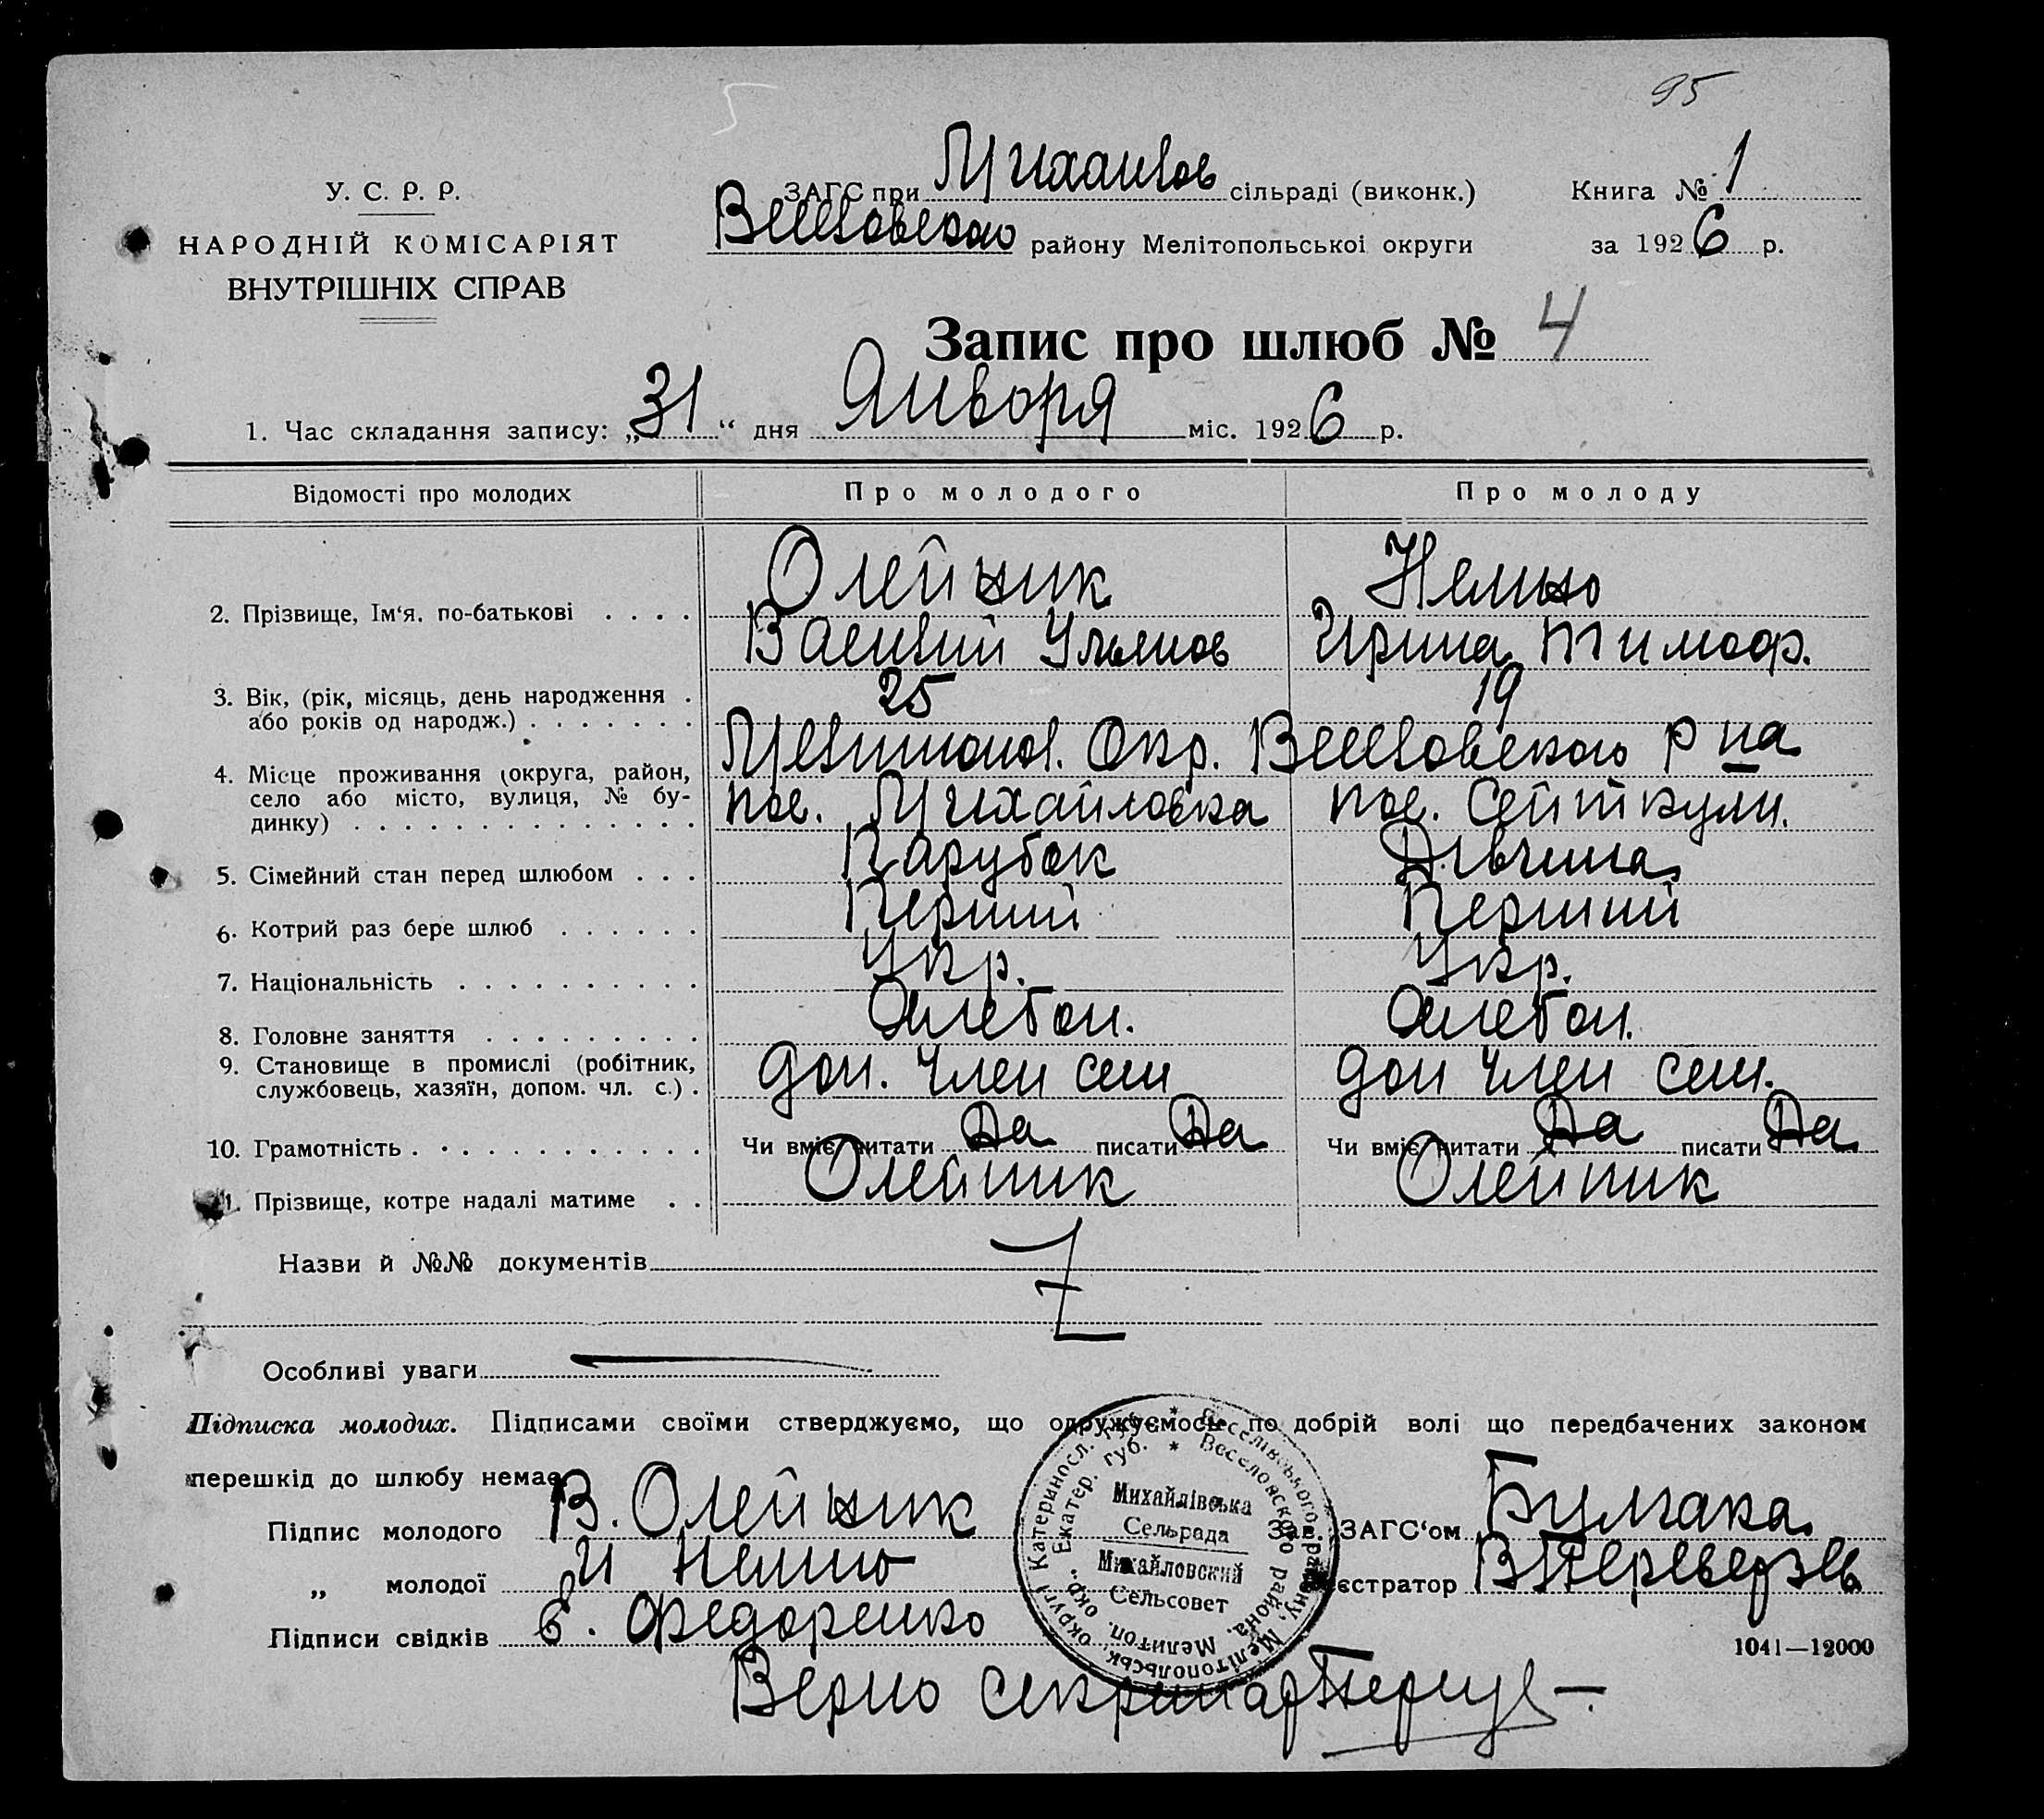 95
У. С. Р. Р.
НАРОДНІЙ КОМІСАРІЯТ
ВНУТРІШНІХ СПРАВ
ЗАГС при Михайлов сільраді (виконк.) Книга № 1
Веселовского району Мелітопольської округи за 1926 р.
Запис про шлюб № 4
1. Час складання запису: „31“ дня Января міс. 1926 р.
Відомості про молодих Про молодого Про молоду
Олейник Немно
2. Прізвище, Ім‘я. по-батькові . . . .
Василий Ульянов Ирина Тимоф.
3. Вік, (рік, місяць, день народження . 25 19
або років од народж.) . . . . . . .
Мелитопол. Окр. Веселовского р на
4. Місце проживання (округа, район,
село або місто, вулиця, № бу- пос. Михайловка пос. Сейткули.
динку) . . . . . . . . . . . . . .
5. Сімейний стан перед шлюбом . . . Парубок Дівчина
6. Котрий раз бере шлюб . . . . . . Перший Перший
7. Національність . . . . . . . . . . Укр. Укр.
8. Головне заняття . . . . . . . . .
9. Становище в промислі (робітник, Доп. член сем Доп член сем.
службовець, хазяїн, допом. чл. с.) .
10. Грамотність . . . . . . . . . . . . Чи вміє читати Да писати Да Чи вміє читати Да писати Да
11. Прізвище, котре надалі матиме . . Олейник Олейник
Назви й №№ документів
Z
Особливі уваги
Підписка молодих. Підписами своїми стверджуємо, що одружуємось по добрій волі що передбачених законом
перешкід до шлюбу немає
Підпис молодого В. Олейник Зав. ЗАГС‘ом Булгака
„ молодої И Немно Реєстратор В Переверзев
Підписи свідків Федоренко
1041—12000
Верно секретарь
Катериносл. губ. * Веселівського району, Мелітопольськ. округи
Екатер. губ. * Веселовского района, Мелитоп. окр.
Михайлівська
Сельрада
Михайловский
Сельсовет